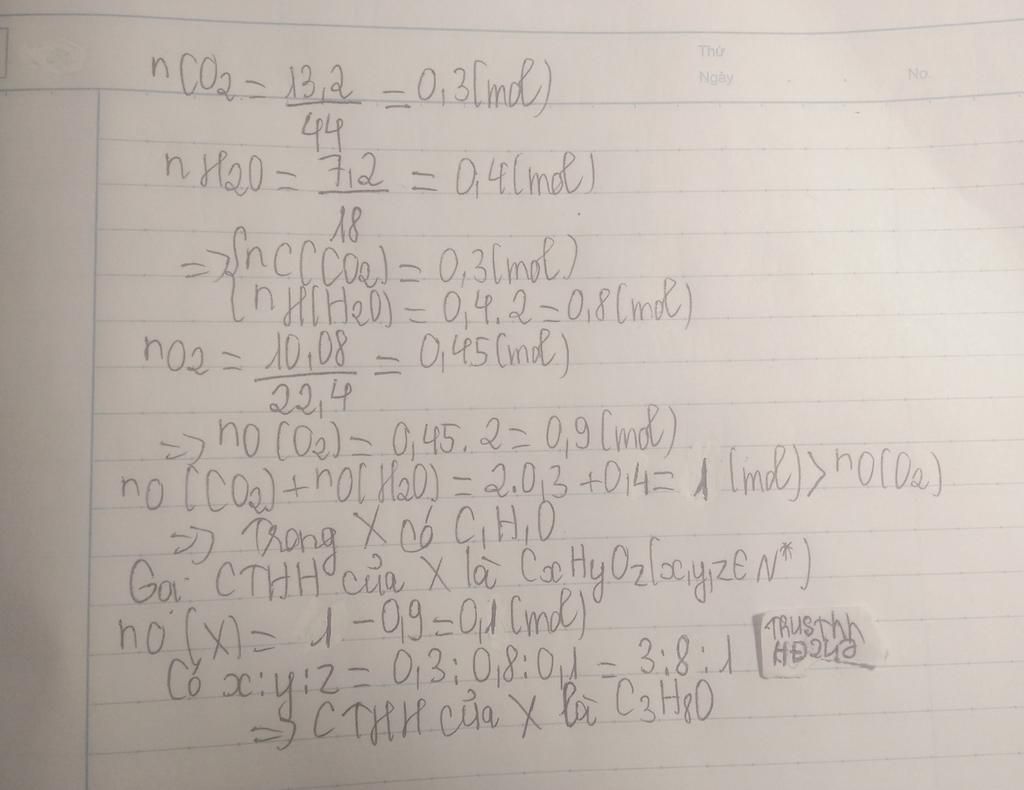 Thứ
Ngày
No.
nCO2 = 13,2/44 = 0,3(mol)
nH2O = 7,2/18 = 0,4(mol)
=> {nC(CO2) = 0,3(mol)
{nH(H2O) = 0,4.2 = 0,8(mol)
nO2 = 10,08/22,4 = 0,45(mol)
=> nO(O2) = 0,45.2 = 0,9(mol)
nO(CO2)+nO(H2O) = 2.0,3+0,4 = 1(mol) > nO(O2)
=> Trong X có C,H,O
Gọi CTHH của X là CxHyOz(x,y,z∈N*)
nO(X) = 1-0,9=0,1(mol)
Có x:y:z = 0,3:0,8:0,1 = 3:8:1
=> CTHH của X là C3H8O